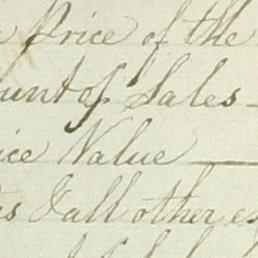 Price of the
unt of Sales
ice Value
s & all other es